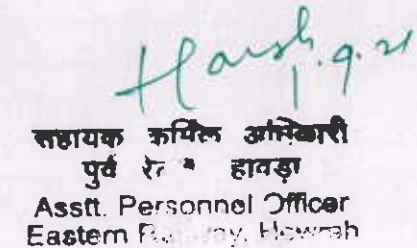 Harsh
1.9.21
सहायक कार्मिक अधिकारी
पूर्व रेलवे हावड़ा
Asstt. Personnel Officer
Eastern Railway, Howrah